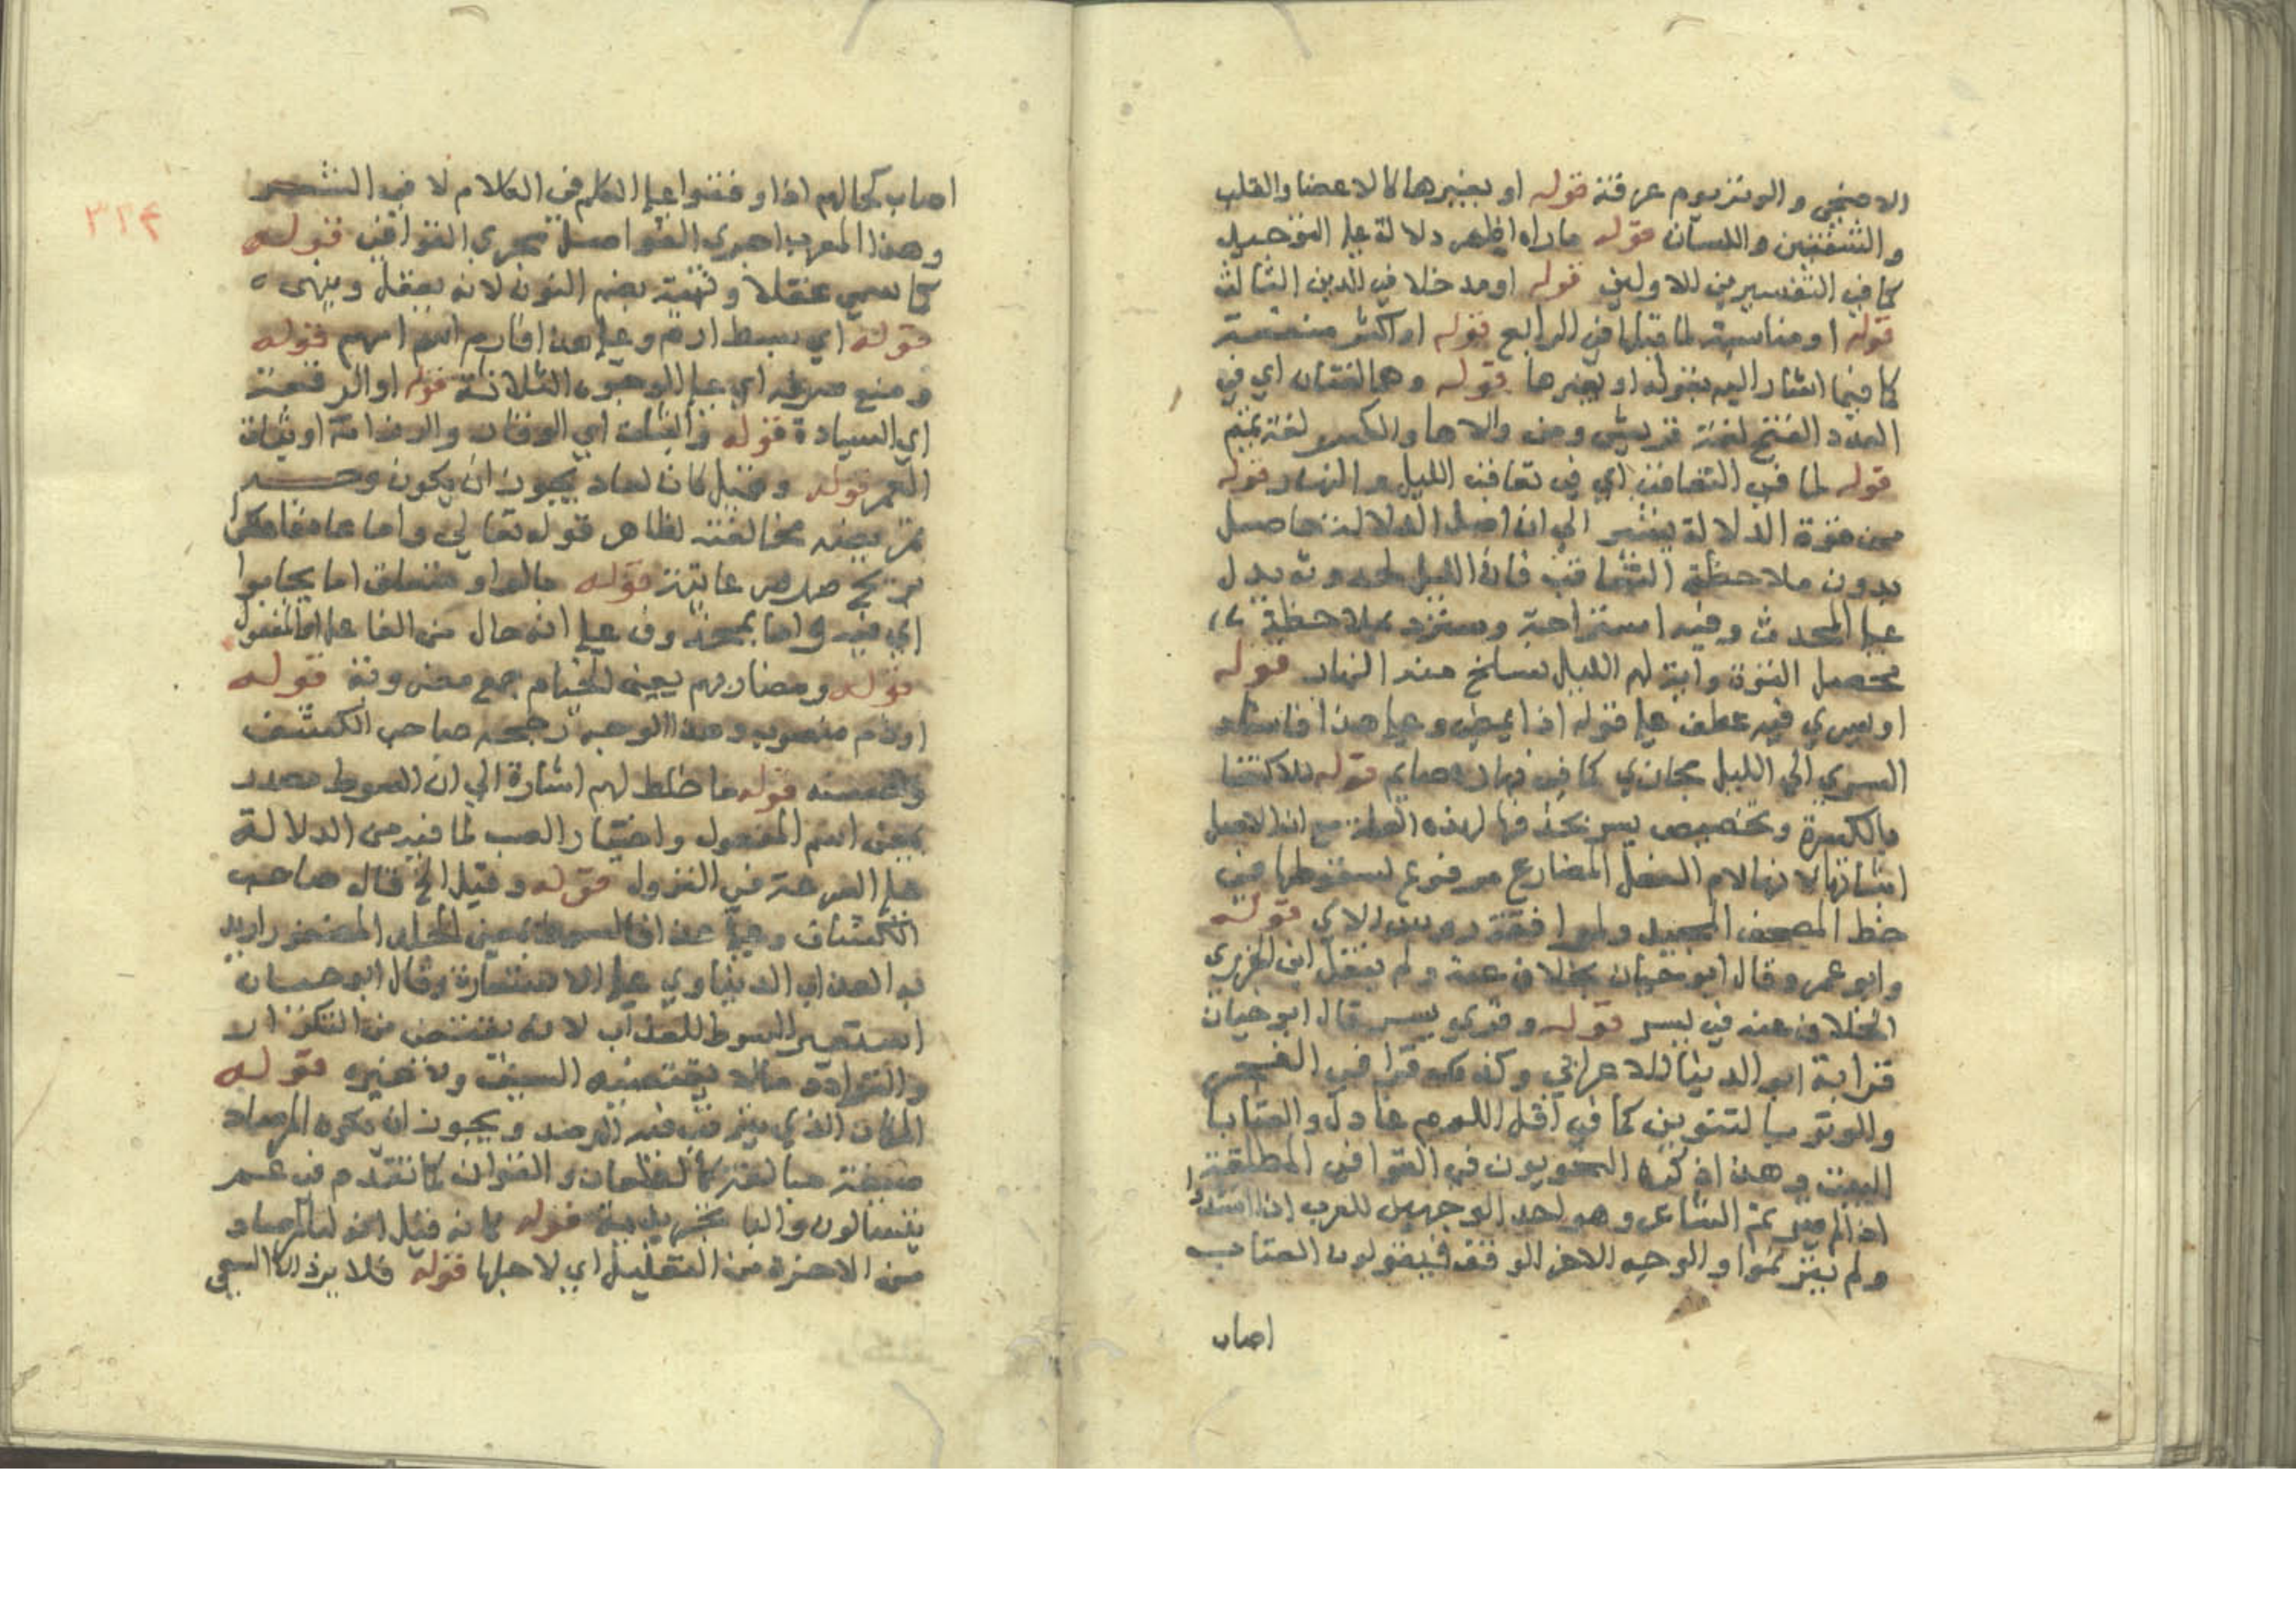 الاضحى والوتر يوم عرفة قوله او بغيرها كالاعضا والقلب
والشفتين واللسان قوله ماراه اظهر دلالة علي التوحيد
كما في التفسيرين للاولين قوله او مدخلا في الدين الثالث
قوله او مناسبة لما قبلها في الرابع قوله او اكثر منفعة
كما فيما اشار اليه بقوله او بغيرها قوله وهما لغتان اي في
العدد الفتح لغة قريش ومن والاها والكسر لغة تميم
قوله لما في التعاقب اي في تعاقب الليل والنهار قوله
من قوة الدلالة يشير الي ان اصل الدلالة حاصل
بدون ملاحظة التعاقب فان الليل يدل
علي المحدث وفيه استراحة وستر وبملاحظة
تحصل القوة واية لهم الليل نسلخ منه النهار قوله
او يسري فيه عطف علي قوله اذا يمضي وعلي هذا فاسناد
السري الي الليل مجازي كما في نهاره صايم قوله للاكتفا
بالكسرة وتخصيص يسر بحذفها لهذه العلة مع ان الاصل
اثباتها لانها لام الفعل المضارع مرفوع لسقوطها في
خط المصحف المجيد ولموافقة رووس الاي قوله
وابو عمرو قال ابو حيان بخلاف عنه ولم ينقل ابن الجزري
الخلاف عنه في يسر قوله وقري يسر قال ابو حيان
قرابة ابو الدينار الاعرابي وكذلك قرا في الفجر
والوتر بالتنوين كما في اقل اللوم عاذل والعتابا
البيت وهذا ذكره النحويون في القوافي المطلقة
اذا لم يترنم الشاعر وهو احد الوجهين للعرب اذا انشدوا
ولم يترنموا والوجه الاخر الوقف فيقولون العتاب
اصاب
٣٢٤
اصاب كحالهم اذا وقفوا علي الكلم في الكلام لا في الشعر
وهذا المعرب اجري الفواصل مجري القوافي قوله
كما سمي عقلا ونهية بضم النون لانه يعقل وينهي
قوله اي سبط ارم وعلي هذا فارم اسم امهم قوله
ومنع صرفه اي علي الوجوه الثلاثة قوله او الرفعة
اي السيادة قوله والثبات اي الوقار والرزانة او ثبات
العمر قوله وقيل كان لعاد يجوز ان يكون وجه
تمريضه مخالفته لظاهر قوله تعالي واما عاد فاهلكوا
بريح صرصر عاتية قوله جالوا ومتعلق اما بجابوا
اي فيه واما بمحذوف علي انه حال من الفاعل او المفعول
قوله ومضاربهم يعني الخيام جمع مضروبة قوله
او ذم منصوب وهذا الوجه رجحه صاحب الكشف
واحسنه قوله ما خلط لهم اشارة الي ان السوط مصدر
بمعني اسم المفعول واختيار الصب لما فيه من الدلالة
علي السرعة في النزول قوله وقيل الخ قال صاحب
الكشاف وعلي هذا فالسوط بمعني الجلد المضفور اريد
به العذاب الدنياوي علي الاستعارة وقال ابو حيان
استعير السوط للعذاب لانه يقتضي من التكرار
والترداد مالا يقتضيه السيف ولا غيره قوله
المكان الذي يترقب فيه الرصد ويجوز ان يكون المرصاد
صيغة مبالغة كالمطعان والمغوار كما تقدم في عم
يتسالون والبا تجريدية قوله كانه قيل انه لبالمرصاد
من الاخرة من التعليل اي لاجلها قوله فلا يريد الا السعي